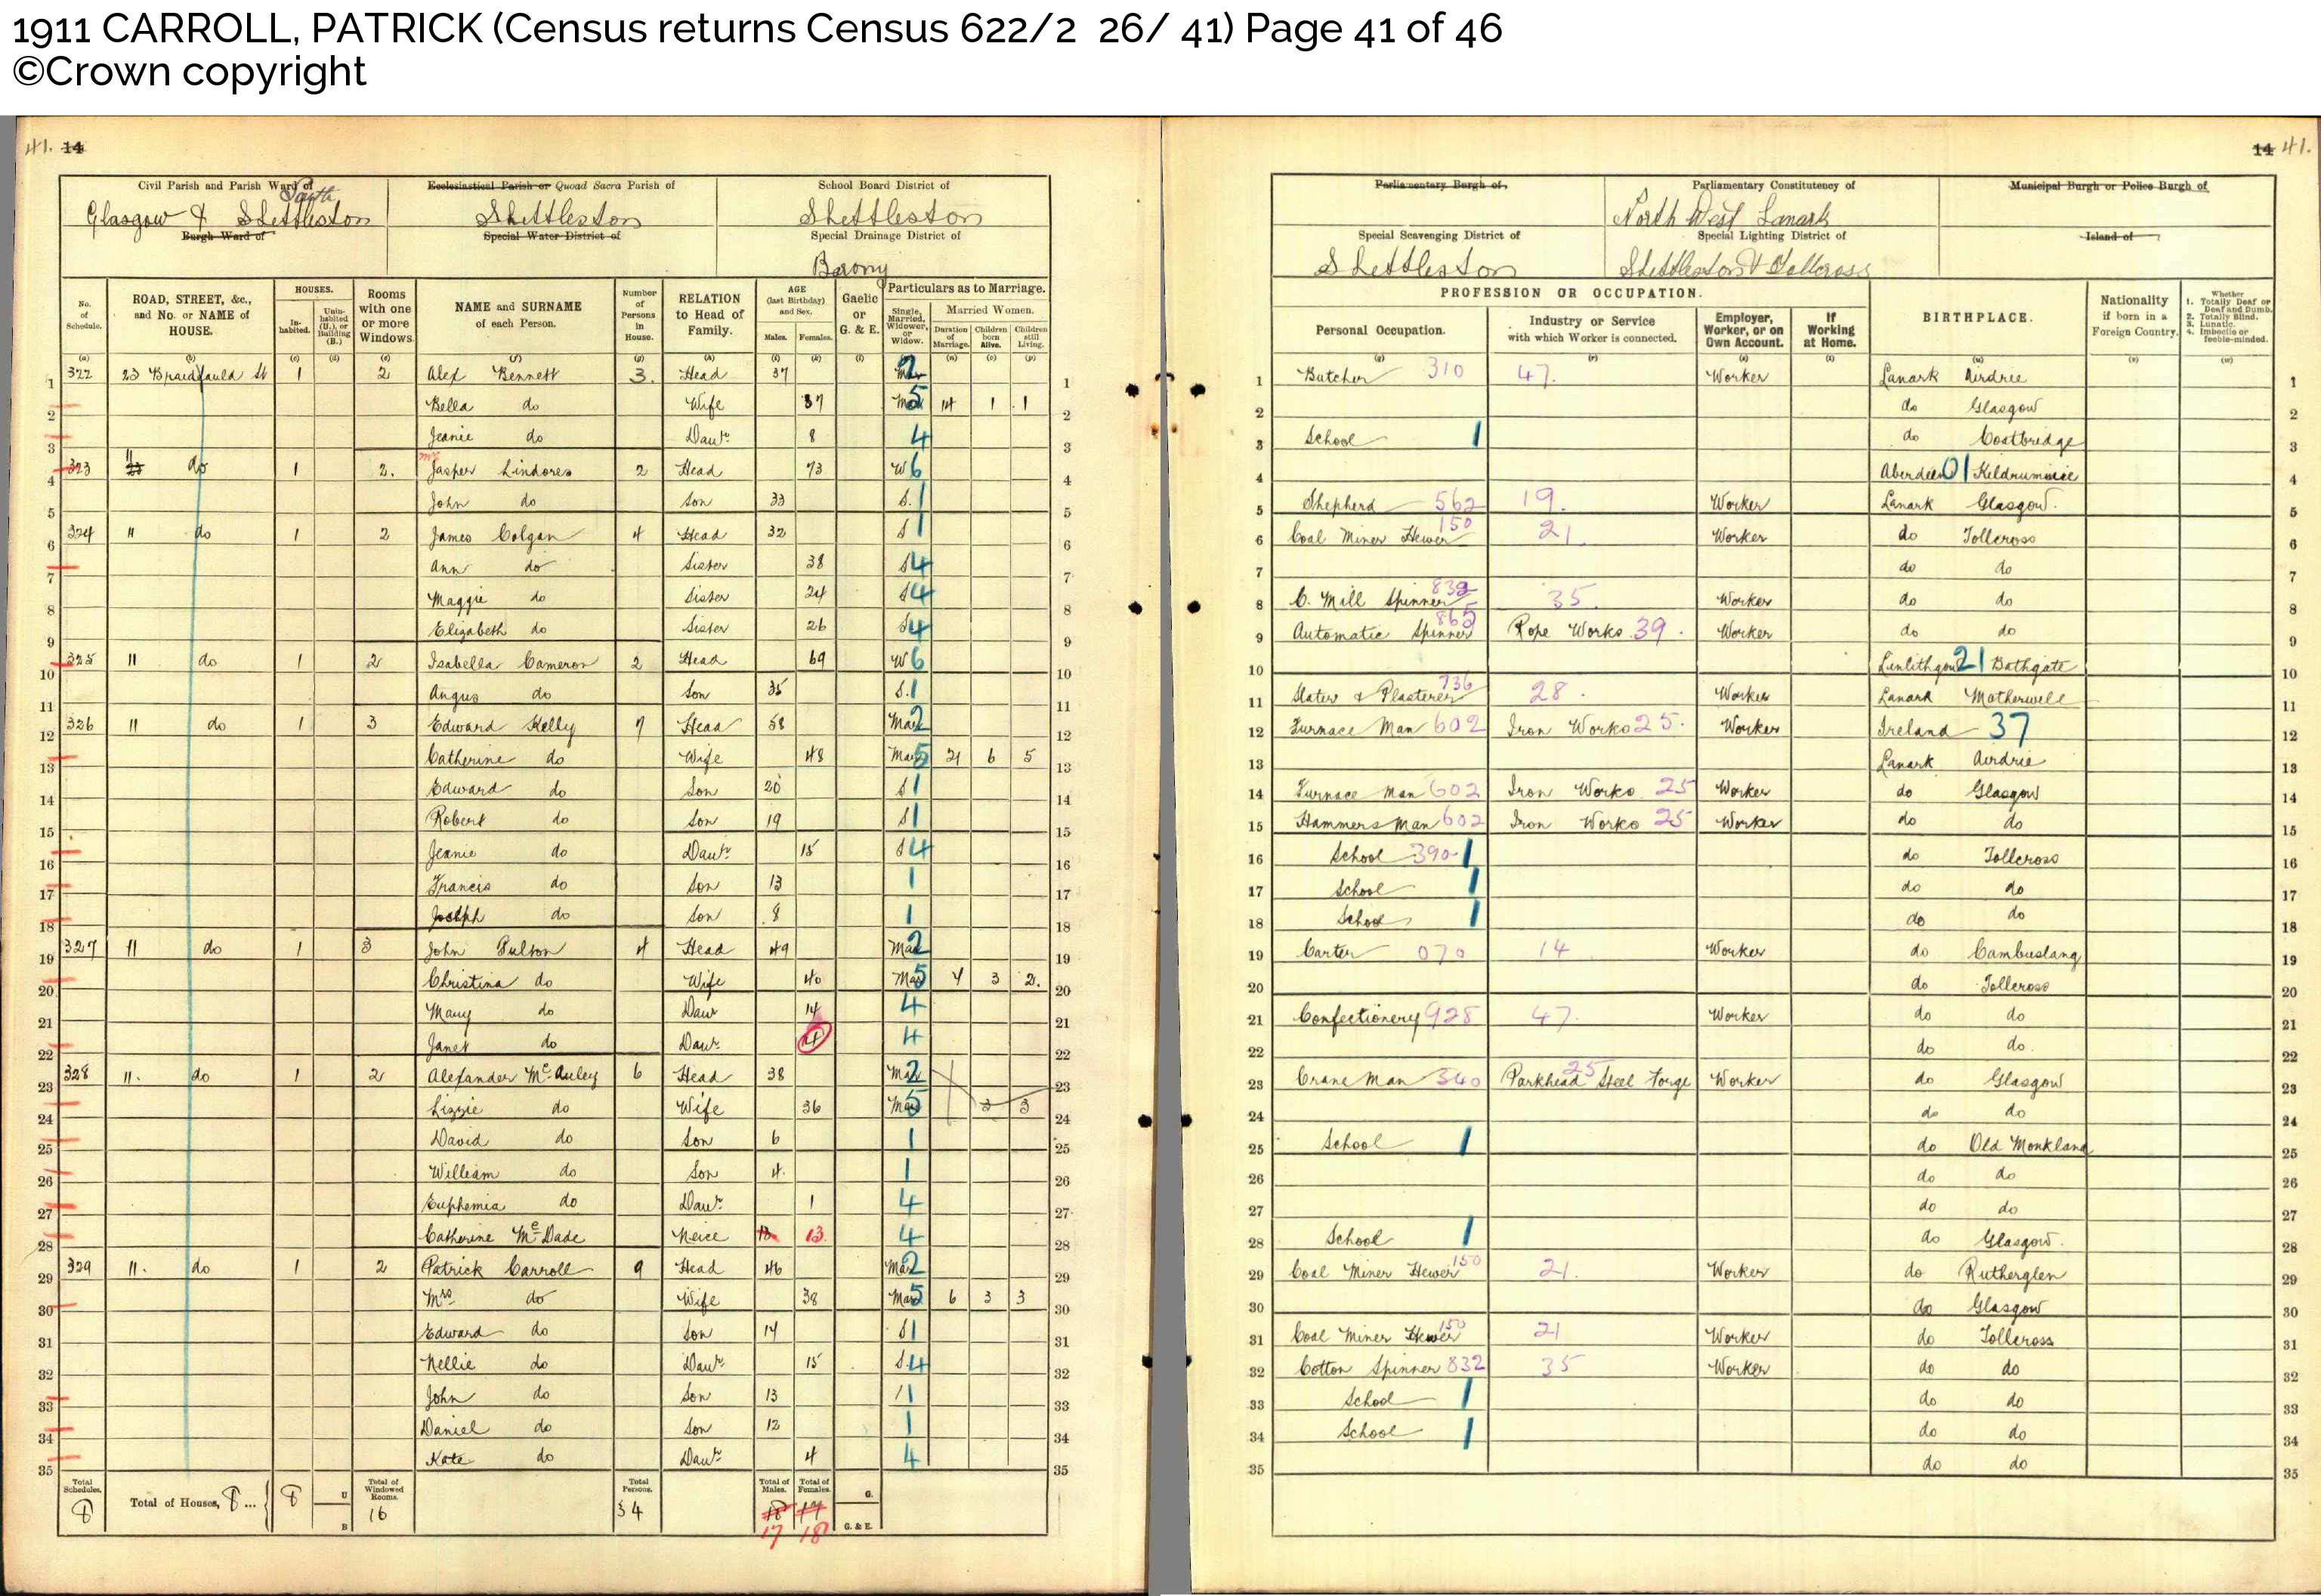 1911 CARROLL, PATRICK (Census returns Census 622/2 26/ 41) Page 41 of 46
©Crown copyright
41. 14
14 41.
Civil Parish and Parish Ward of
South
Glasgow & Shettleston
Burgh Ward of
Ecclesiastical Parish or Quoad Sacra Parish of
Shettleston
Special Water District of
School Board District of
Shettleston
Special Drainage District of
Barony
Parliamentary Burgh of
Parliamentary Constitutency of
North West Lanark
Municipal Burgh or Police Burgh of
Special Scavenging District of
Shettleston
Special Lighting District of
Shettleston & Tollcross
Island of
No. of Schedule.
ROAD, STREET, &c., and No. or NAME of HOUSE.
HOUSES.
Inhabited.
Uninhabited (U.), or Building (B.)
Rooms with one or more Windows
NAME and SURNAME of each Person.
Number of Persons in House.
RELATION to Head of Family.
AGE (last Birthday) and Sex.
Males. Females.
Gaelic or G. & E.
Particulars as to Marriage.
Single, Married, Widower, or Widow.
Married Women.
Duration of Marriage. Children born Alive. Children still Living.
PROFESSION OR OCCUPATION.
Personal Occupation.
Industry or Service with which Worker is connected.
Employer, Worker, or on Own Account.
If Working at Home.
BIRTHPLACE.
Nationality if born in a Foreign Country.
Whether 1. Totally Deaf or Deaf and Dumb. 2. Totally Blind. 3. Lunatic. 4. Imbecile or feeble-minded.
1 322 23 Braidfauld St 1 2 Alex Bennett 3. Head 37 Mar 2 Butcher 310 47. Worker Lanark Airdrie 1
2 Bella do Wife 37 Mar 5 14 1 1 do Glasgow 2
3 Jeanie do Daur. 8 4 School 1 do Coatbridge 3
4 323 11 do 1 2. Mrs Jasper Lindores 2 Head 73 W 6 Aberdeen 01 4
5 John do Son 33 S. 1 Shepherd 562 19. Worker Lanark Glasgow. 5
6 324 11 do 1 2 James Colgan 4 Head 32 S 1 Coal Miner Hewer 150 21 Worker do Tollcross 6
7 Ann do Sister 38 S 4 do do 7
8 Maggie do Sister 24 S 4 C. Mill Spinner 832 35. Worker do do 8
9 Elizabeth do Sister 26 S 4 Automatic Spinner 865 Rope Works 39. Worker do do 9
10 325 11 do 1 2 Isabella Cameron 2 Head 69 W 6 Linlithgow 21 Bathgate 10
11 Angus do Son 35 S. 1 Slater & Plasterer 736 28. Worker Lanark Motherwell 11
12 326 11 do 1 3 Edward Kelly 7 Head 58 Mar 2 Furnace Man 602 Iron Works 25. Worker Ireland 37 12
13 Catherine do Wife 48 Mar 5 21 6 5 Lanark Airdrie 13
14 Edward do Son 20 S 1 Furnace Man 602 Iron Works 25 Worker do Glasgow 14
15 Robert do Son 19 S 1 Hammers Man 602 Iron Works 25 Worker do do 15
16 Jeanie do Daur. 15 S 4 School 390 1 do Tollcross 16
17 Francis do Son 13 1 School 1 do do 17
18 Joseph do Son 8 1 School 1 do do 18
19 327 11 do 1 3 John Fulton 4 Head 49 Mar 2 Carter 070 14 Worker do Cambuslang 19
20 Christina do Wife 40 Mar 5 3 2. do Tollcross 20
21 Mary do Daur 14 4 Confectionery 928 47. Worker do do 21
22 Janet do Daur. 4 4 do do. 22
23 328 11. do 1 2 Alexander McAuley 6 Head 38 Mar 2 Crane Man 340 Parkhead Steel Forge 25 Worker do Glasgow 23
24 Lizzie do Wife 36 Mar 5 3 3 do do 24
25 David do Son 6 1 School 1 do Old Monkland 25
26 William do Son 4. 1 do do 26
27 Euphemia do Daur. 1 4 do do 27
28 Catherine McDade Neice 13 13. 4 School 1 do Glasgow. 28
29 329 11. do 1 2 Patrick Carroll 9 Head 46 Mar 2 Coal Miner Hewer 150 21. Worker do Rutherglen 29
30 Mrs do Wife 38 Mar 5 6 3 3 do Glasgow 30
31 Edward do Son 14 S 1 Coal Miner Hewer 150 21 Worker do Tollcross 31
32 Nellie do Daur. 15 S. 4 Cotton Spinner 832 35 Worker do do 32
33 John do Son 13 1 School 1 do do 33
34 Daniel do Son 12 1 School 1 do do 34
35 Kate do Daur. 4 4 do do 35
Total Schedules. 8
Total of Houses, 8 ... 8 U B
Total of Windowed Rooms. 16
Total Persons. 34
Total of Males. 18 17
Total of Females. 17 18
G.
G. & E.